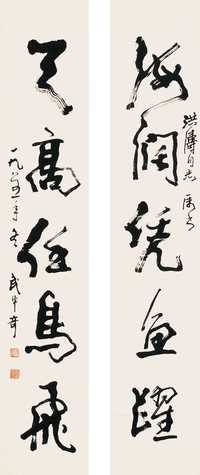 海阔凭鱼跃
洪涛同志属书
天高任鸟飞
一九八五年冬 武中奇